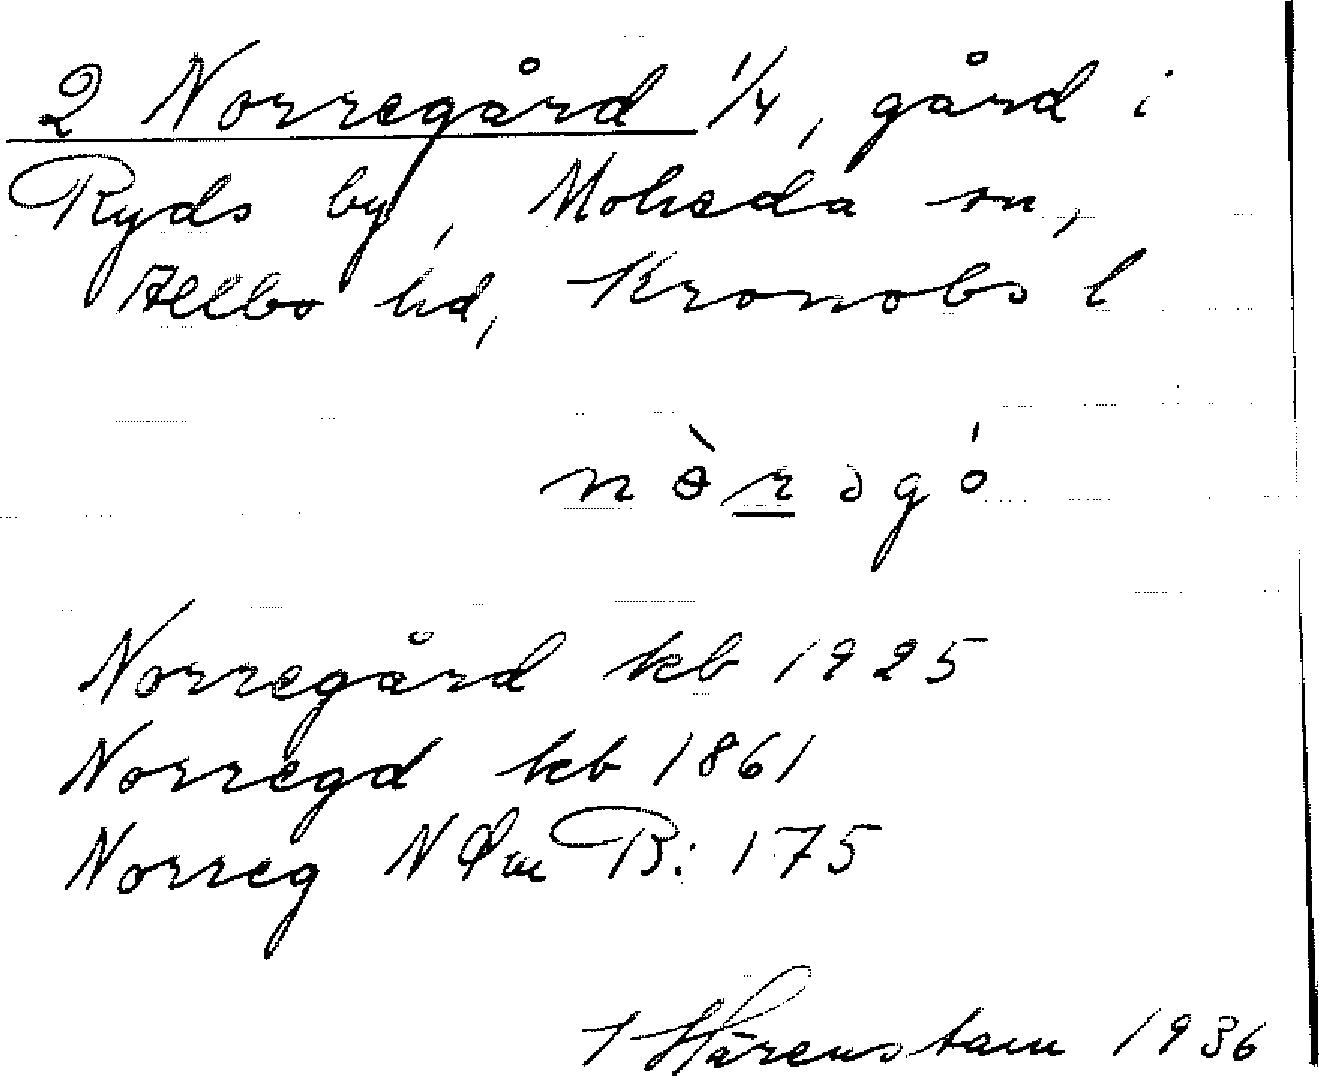 2 Norregård 1/4, gård i
Ryds by, Moheda sn,
Allbo hd, Kronobs l
nèrəgó
Norregård kb 1925
Norregd kb 1861
Norreg N B: 175
Härenstam 1936